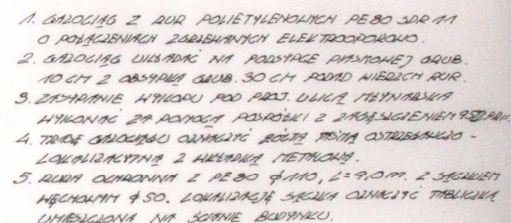 1. GAZOCIĄG Z RUR POLIETYLENOWYCH PE 80 SDR 11
O POŁĄCZENIACH ZGRZEWANYCH ELEKTROOPOROWO.
2. GAZOCIĄG UKŁADAĆ NA PODSYPCE PIASKOWEJ GRUB.
10 CM Z OBSYPKĄ GRUB. 30 CM PONAD WIERZCH RUR.
3. ZASYPANIE WYKOPU POD PROJ. ULICĄ MŁYNARSKA
WYKONAĆ ZA POMOCĄ POSPÓŁKI Z ZAGĘSZCZENIEM
4. TRASĘ GAZOCIĄGU OZNACZYĆ ŻÓŁTĄ TAŚMĄ OSTRZEGAWCZO-
LOKALIZACYJNĄ Z WKŁADKĄ METALOWĄ.
5. RURA OCHRONNA Z PE 80 ϕ110, L= 9,0 m. Z SĄCZKIEM
WĘCHOWYM ϕ50. LOKALIZACJĘ SĄCZKA OZNACZYĆ TABLICZKĄ
UMIESZCZONĄ NA ŚCIANIE BUDYNKU.